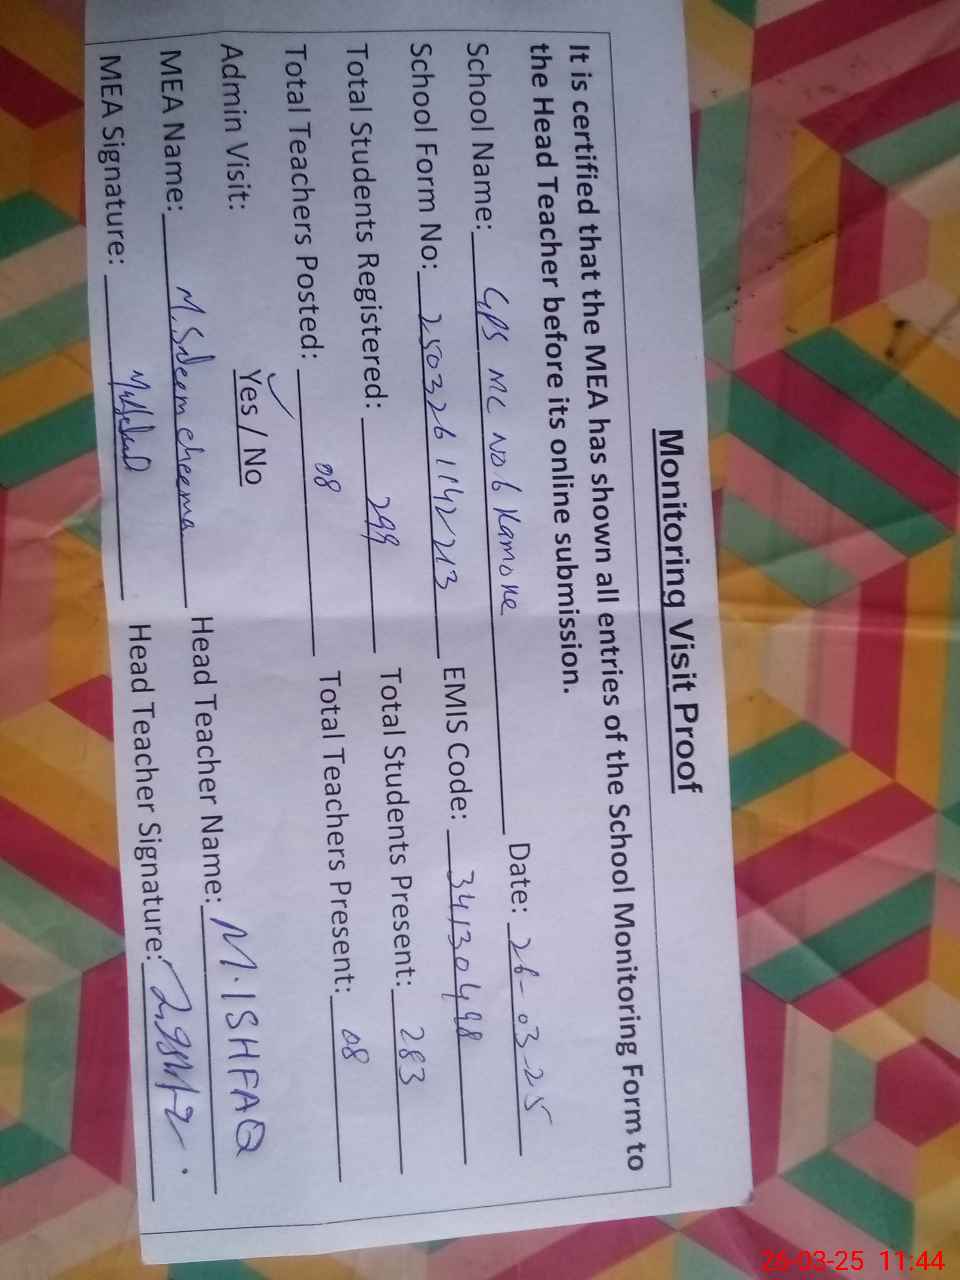 Monitoring Visit Proof
It is certified that the MEA has shown all entries of the School Monitoring Form to
the Head Teacher before its online submission.
School Name: GPS MC No 6 Kamoke Date: 26-03-25
School Form No: 2503261142213 EMIS Code: 34130498
Total Students Registered: 299 Total Students Present: 283
Total Teachers Posted: 08 Total Teachers Present: 08
Admin Visit: Yes / No
MEA Name: M. Saleem cheema Head Teacher Name: M. ISHFAQ
MEA Signature: Head Teacher Signature:
26-03-25 11:44